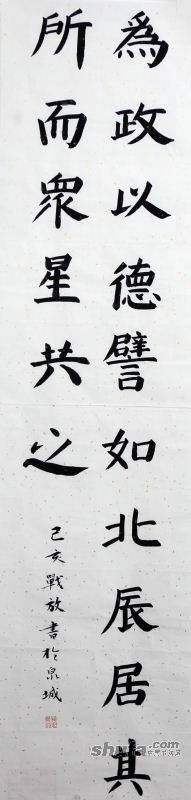 為政以德譬如北辰居其
所而眾星共之
己亥戰放書於泉城